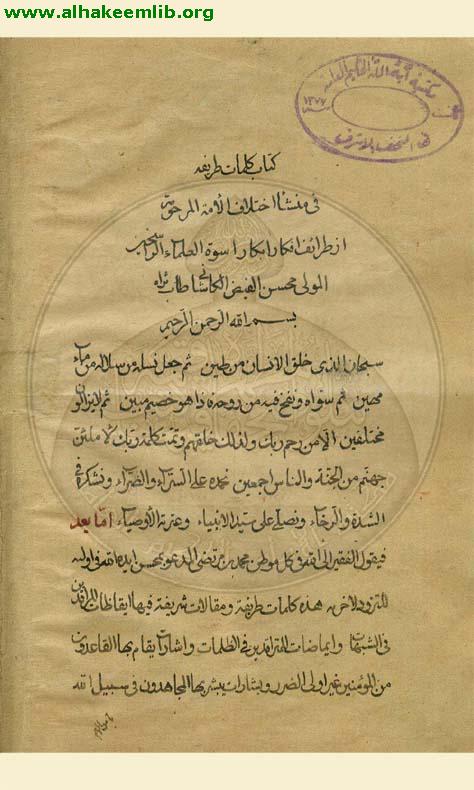 www.alhakeemlib.org
مكتبة آية الله الحكيم العامة
١٣٧٧
النجف الاشرف
كتاب كلمات طريفه
فى منشأ اختلاف الأمة المرحومة
از طرائف افكار ابكار اسوة العلماء الراسخين
المولى محسن الفيض الكاشانى طاب ثراه
بسم الله الرحمن الرحيم
سبحان الذى خلق الانسان من طين ثم جعل نسله من سلالة من ماء
مهين ثم سواه ونفخ فيه من روحه فاذا هو خصيم مبين ثم لايزالون
مختلفين الا من رحم ربك ولذلك خلقهم وتمت كلمة ربك لاملئن
جهنم من الجنة والناس اجمعين نحمده على السراء والضراء ونشكره فى
الشدة والرخاء ونصلى على سيد الانبياء وعترته الأوصياء اما بعد
فيقول الفقير الى الله فى كل موطن محمد بن مرتضى المدعو بمحسن ايده الله فى اولاه
للتزود لاخريه هذه كلمات طريفة ومقالات شريفة فيها ايقاظات للراقدين
فى الشبهات وايماضات للمترددين فى الظلمات واشارات يقام بها القاعدون
من المؤمنين غير اولى الضرر وبشارات يبشر بها المجاهدون فى سبيل الله